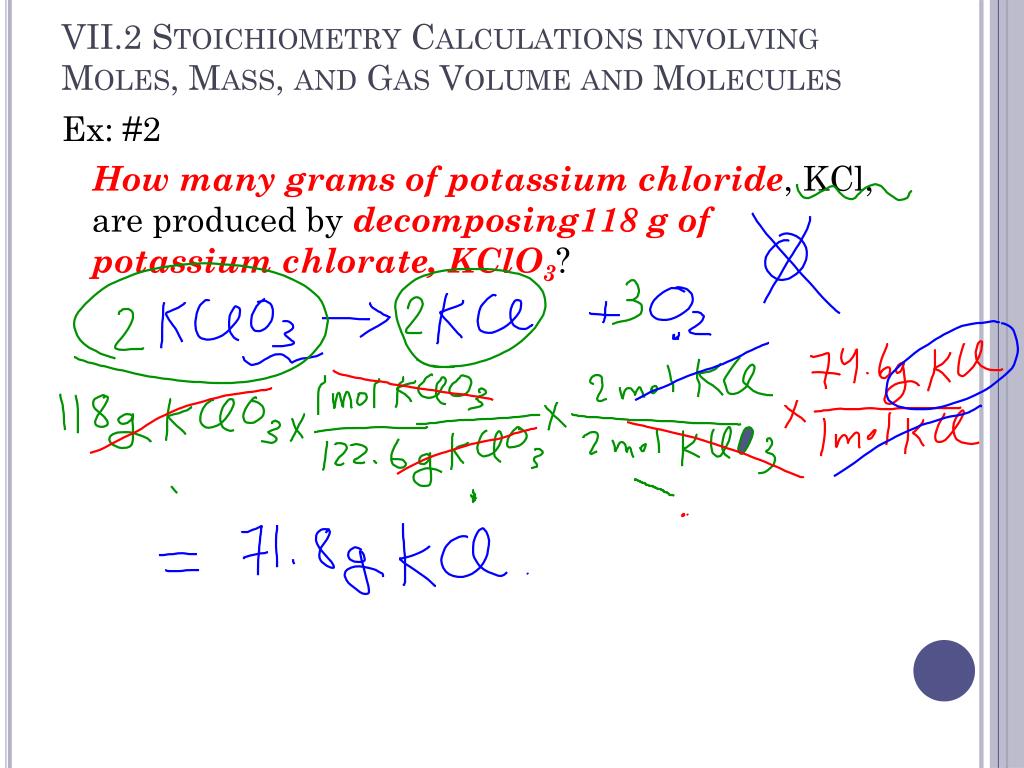 VII.2 STOICHIOMETRY CALCULATIONS INVOLVING
MOLES, MASS, AND GAS VOLUME AND MOLECULES
Ex: #2
How many grams of potassium chloride, KCl,
are produced by decomposing118 g of
potassium chlorate, KClO₃?
2 KClO₃ → 2 KCl + 3O₂
118g KClO₃ x 1mol KClO₃ x 2 mol KCl x 74.6g KCl
122.6g KClO₃ 2 mol KClO₃ 1mol KCl
= 71.8g KCl.